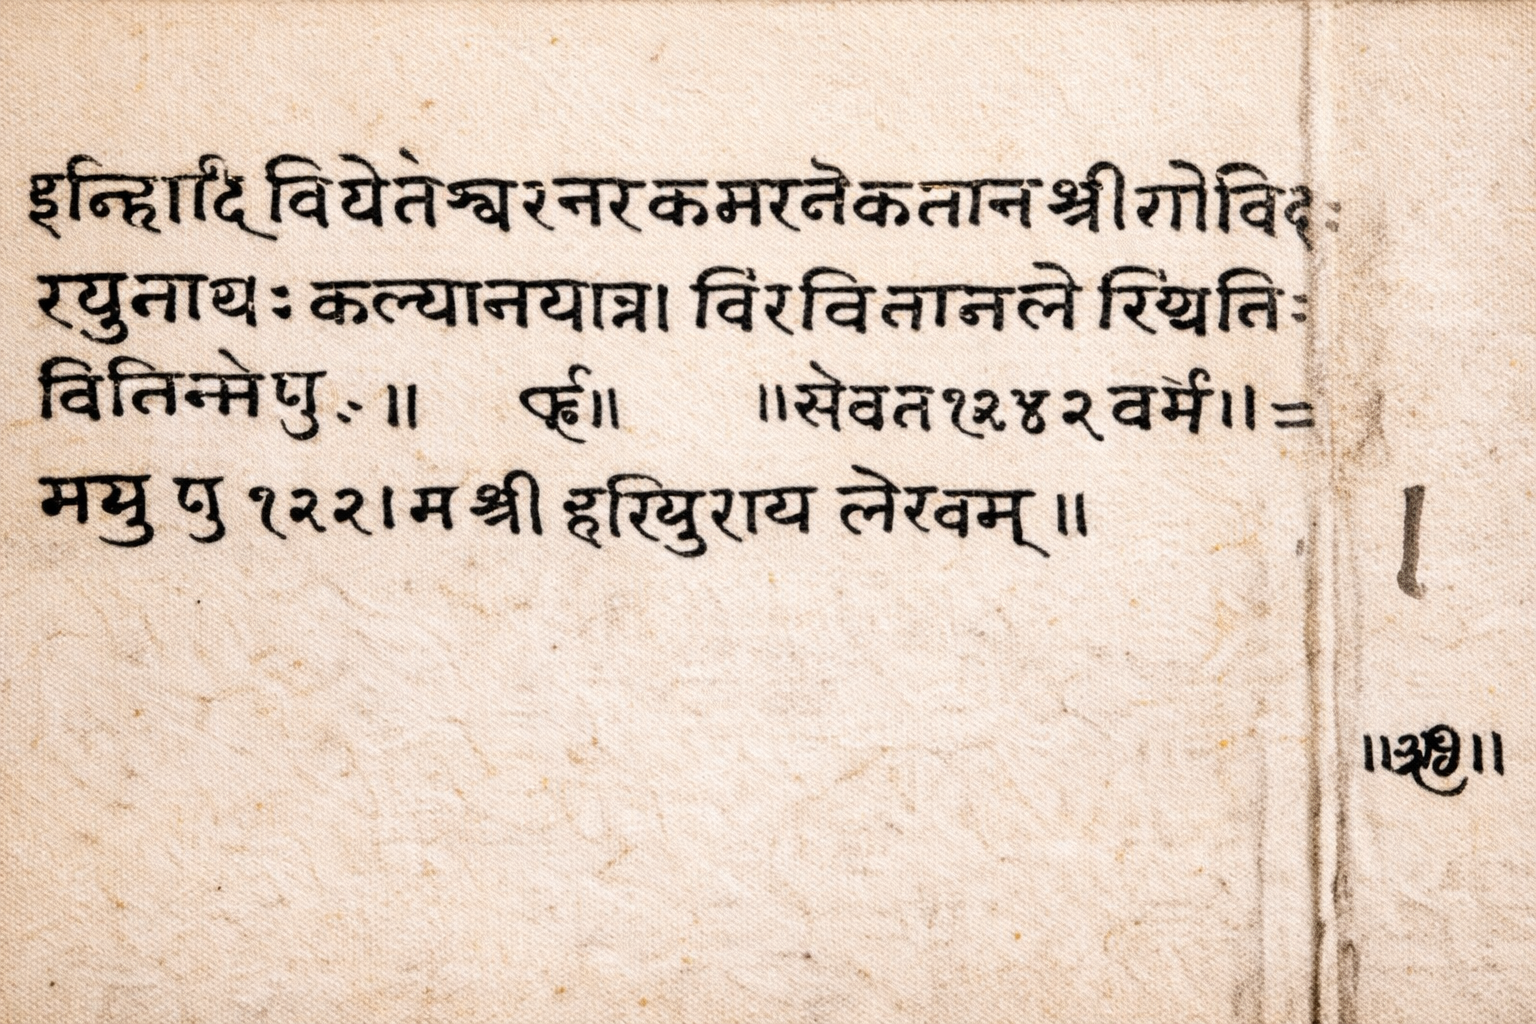 इन्हिादि वियेतेश्वरनरकमरनेकतानश्रीगोविदः
रयुनाथः कल्यानयात्रा। विंरवितानले स्थिंतिः
वितिन्मेपु ॥ ॥ ॥सेवत१२४२वर्मे॥=
मयु पु १२२।म श्री हरियुराय लेखम् ॥